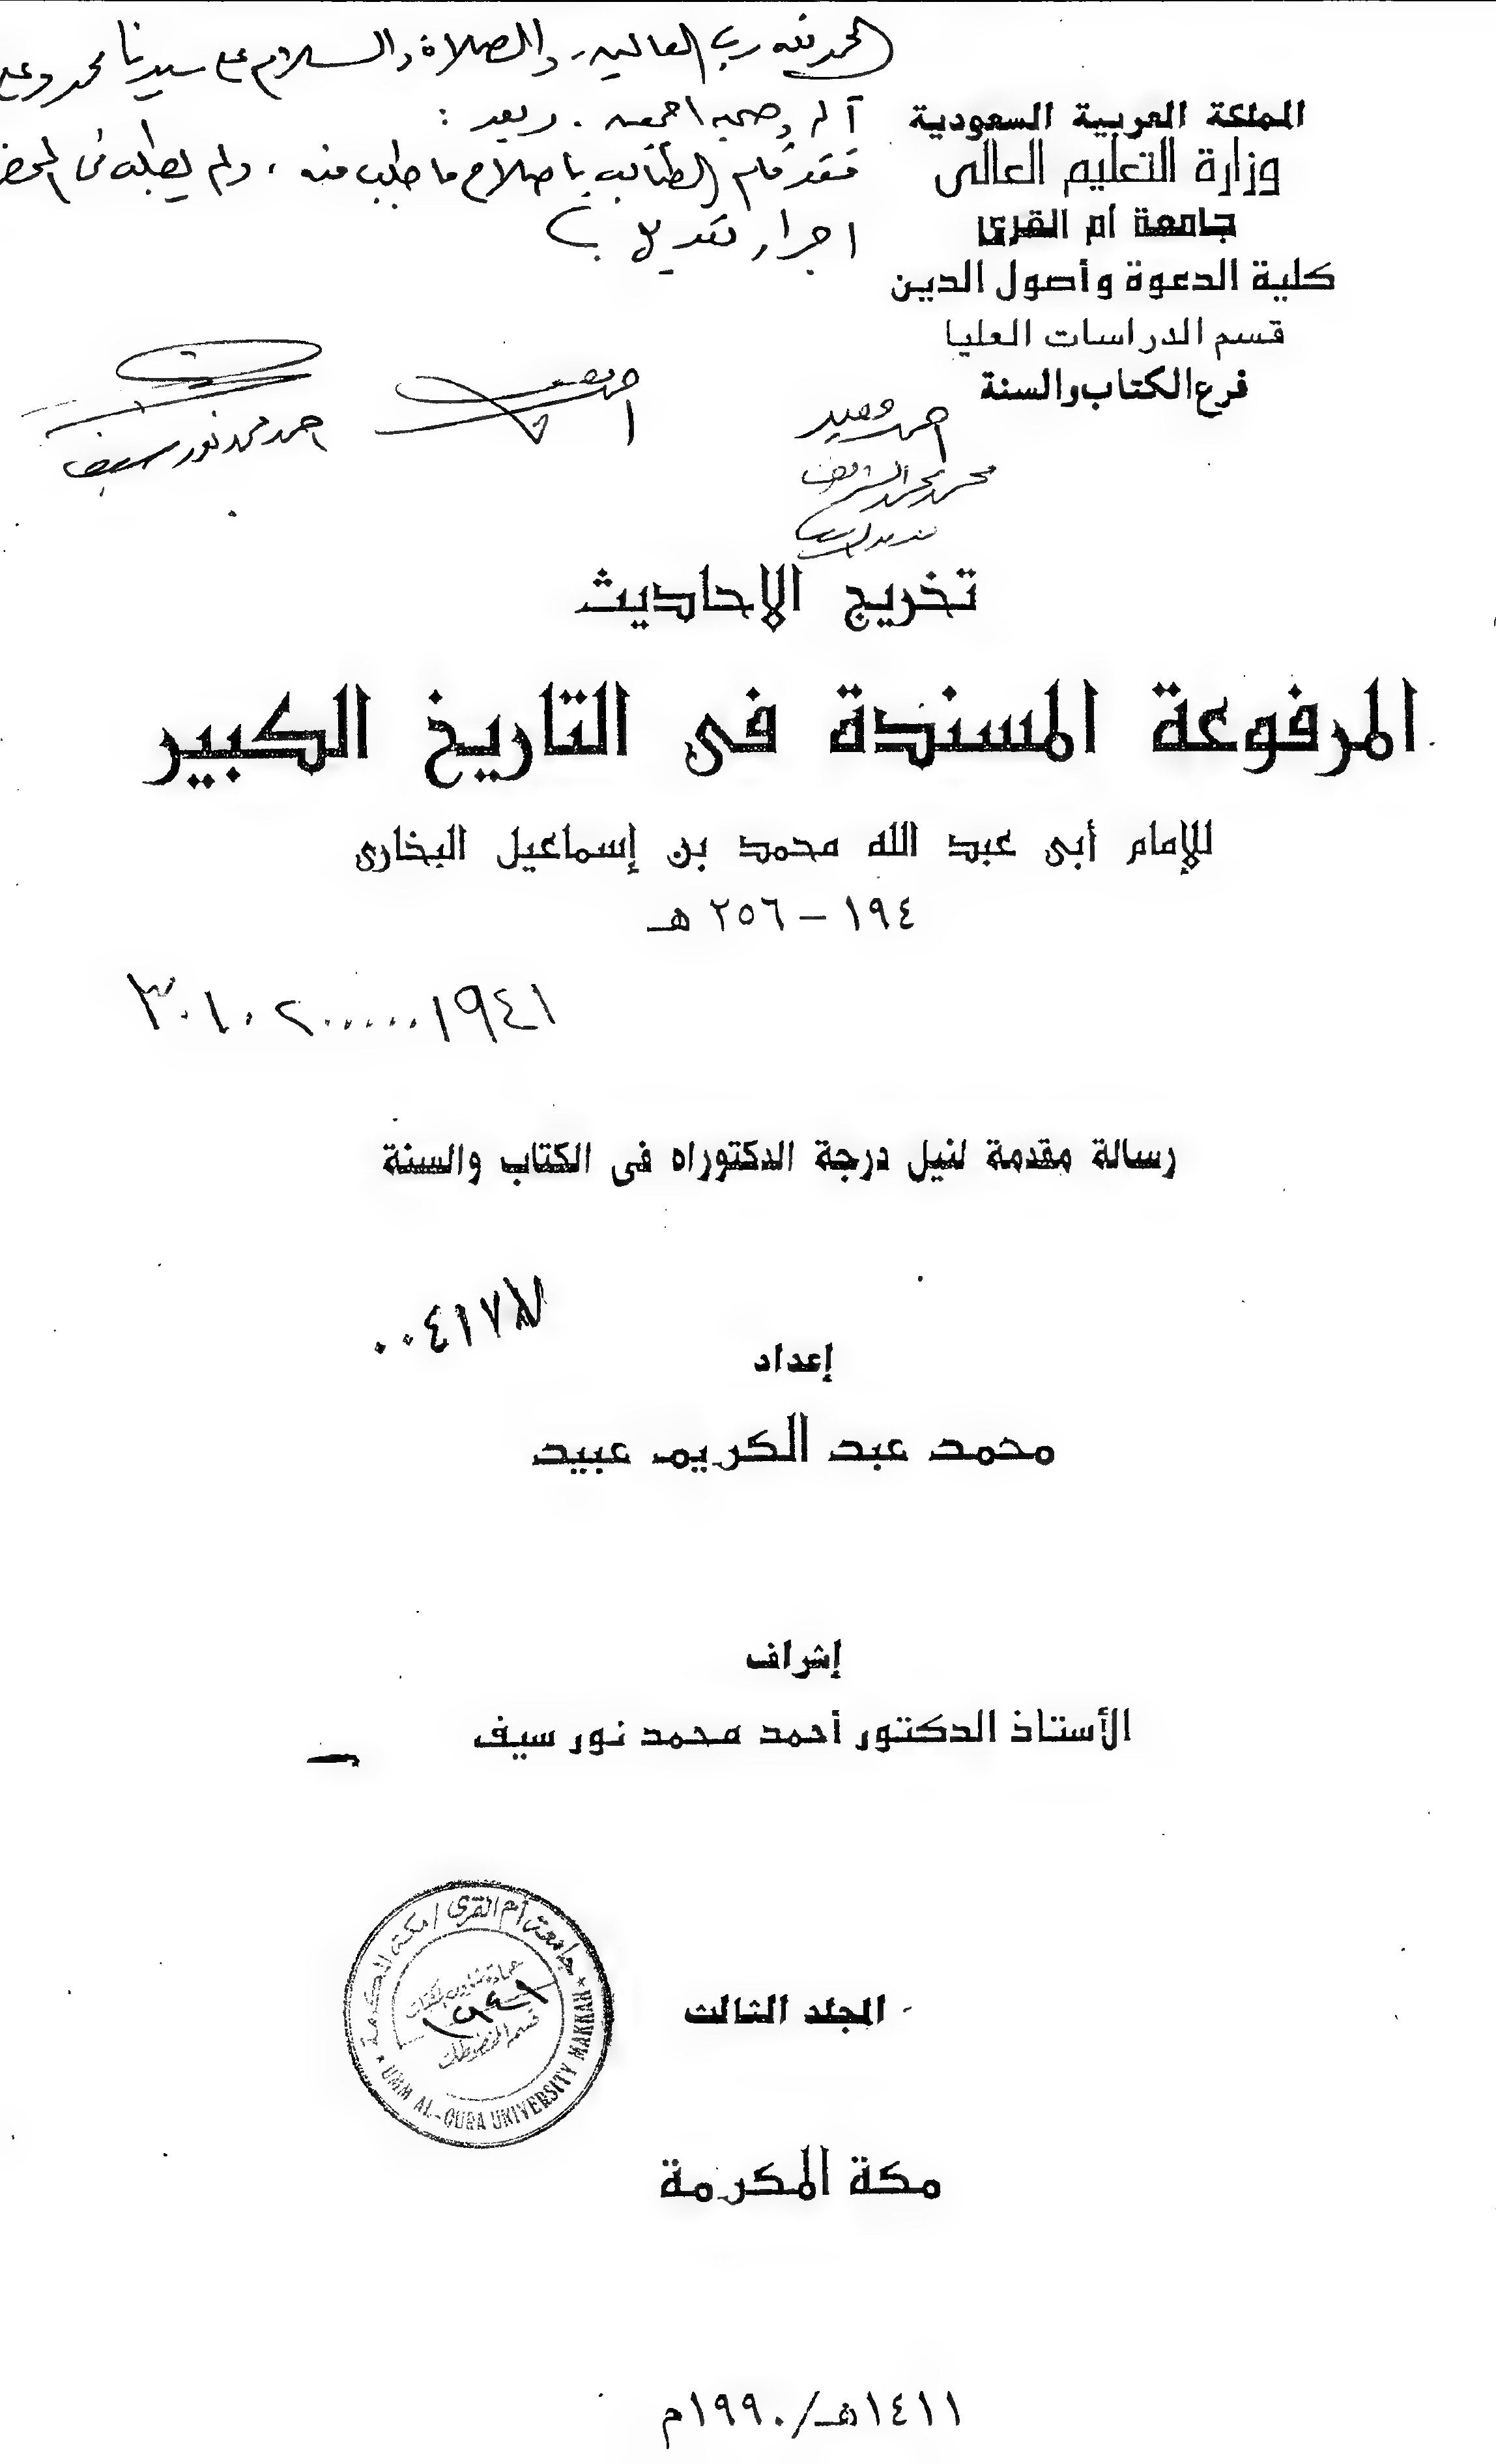 الحمد لله رب العالمين، والصلاة والسلام على سيدنا محمد وعلى
آله وصحبه أجمعين . وبعد :
فقد قام الطالب باصلاح ما طلب منه ، ولم يطلب في المحضر
اجراء تعديل
المملكة العربية السعودية
وزارة التعليم العالى
جامعة أم القرى
كلية الدعوة وأصول الدين
قسم الدراسات العليا
فرع الكتاب والسنة
احمد محمد نور سيف
تخريج الاحاديث
المرفوعة المسندة فى التاريخ الكبير
للإمام أبى عبد الله محمد بن إسماعيل البخارى
١٩٤ – ٢٥٦ هـ
٣٠١٠٢٠٠٠٠٠١٩٤١
رسالة مقدمة لنيل درجة الدكتوراه فى الكتاب والسنة
إعداد
محمد عبد الكريم عبيد
إشراف
الأستاذ الدكتور أحمد محمد نور سيف
المجلد الثالث
جامعة أم القرى / مكة المكرمة
عمادة شئون المكتبات
قسم المخطوطات
UMM AL-QURA UNIVERSITY MAKKAH
مكة المكرمة
١٤١١هـ/١٩٩٠م